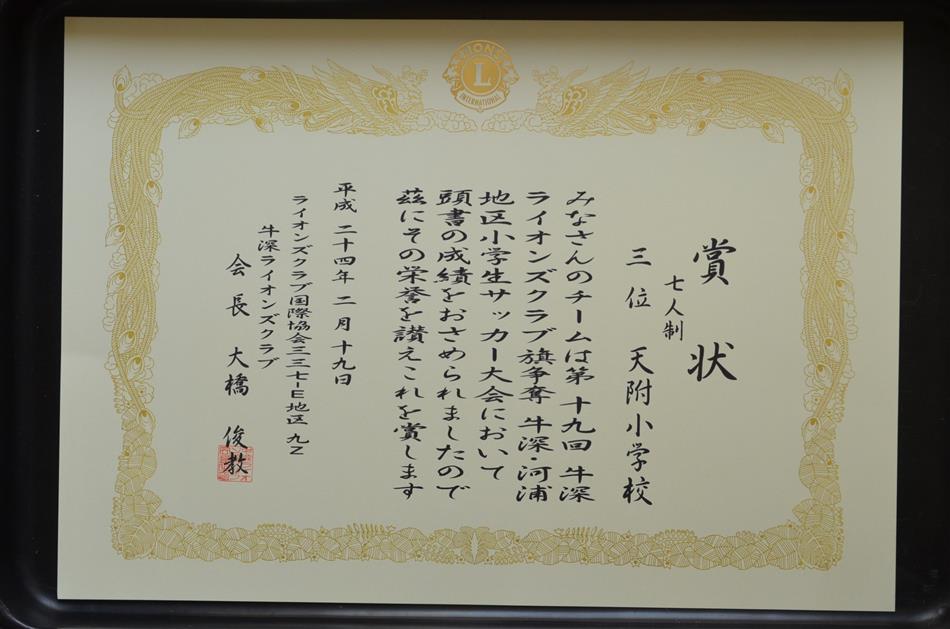 LIONS
L
INTERNATIONAL
賞状
七人制
三位 天附小学校
みなさんのチームは第十九回 牛深
ライオンズクラブ旗争奪 牛深・河浦
地区小学生サッカー大会において
頭書の成績をおさめられましたので
茲にその栄誉を讃えこれを賞します
平成 二十四年 二月 十九日
ライオンズクラブ国際協会三三七-E地区 九Z
牛深ライオンズクラブ
会長 大橋 俊教